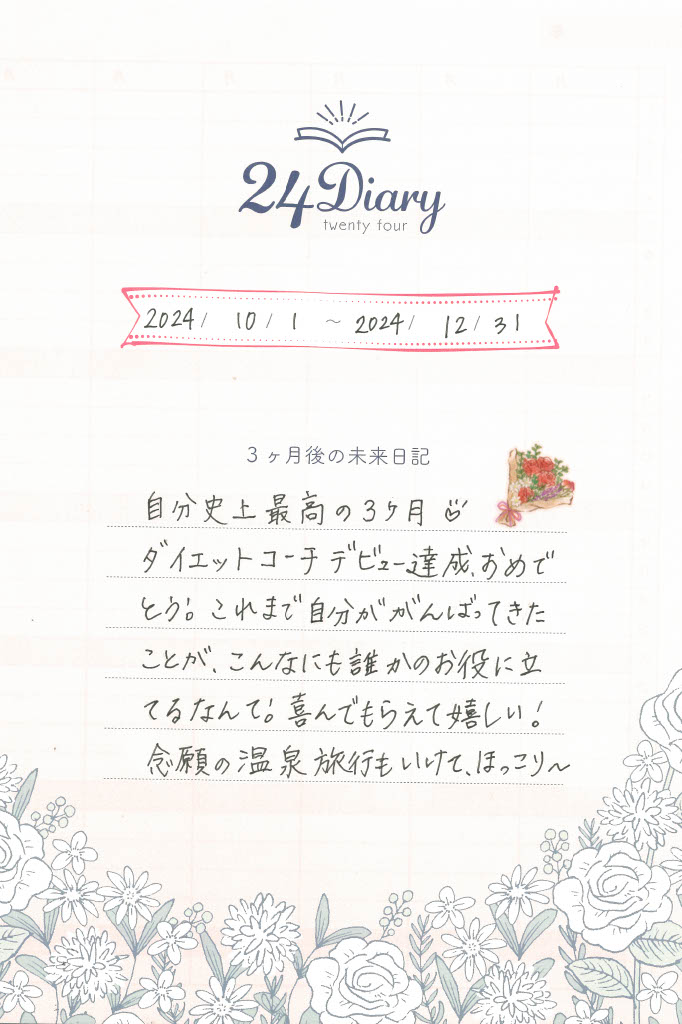 24 Diary
twenty four
2024/ 10/ 1 ～ 2024/ 12/ 31
3ヶ月後の未来日記
自分史上最高の3ヶ月
ダイエットコーチデビュー達成、おめで
とう！これまで自分ががんばってきた
ことが、こんなにも誰かのお役に立
てるなんて！喜んでもらえて嬉しい！
念願の温泉旅行もいけて、ほっこり〜